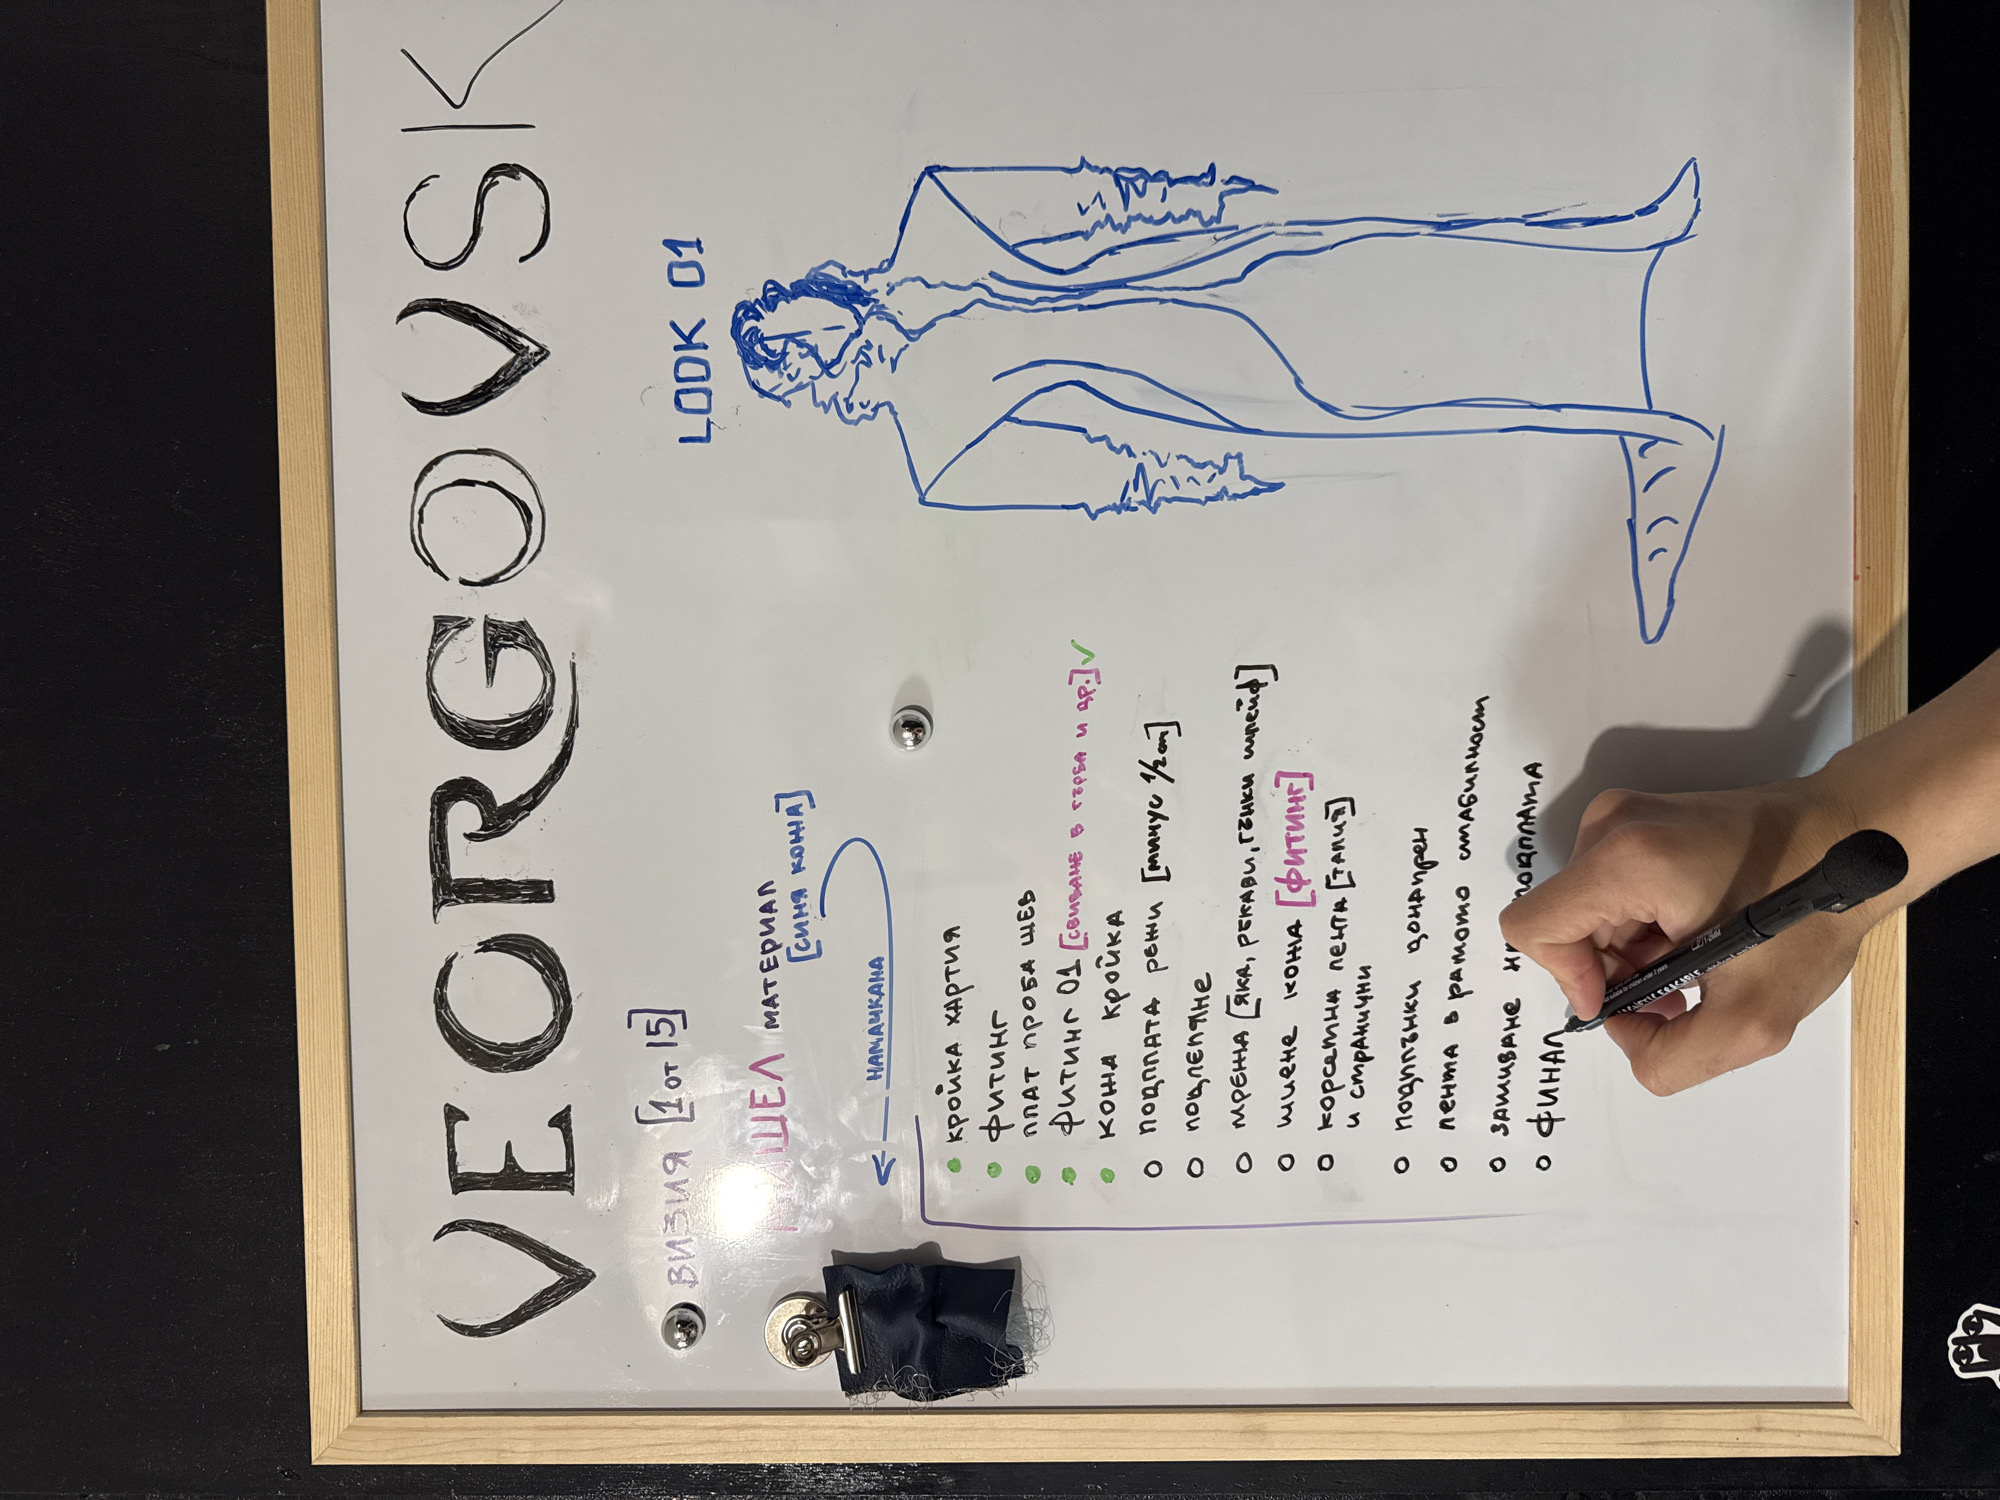 VEORGOVSK
LOOK 01
ВИЗИЯ [1 от 15]
МИШЕЛ МАТЕРИАЛ
[СИНЯ КОЖА]
НАМАЧКАНА
КРОЙКА ХАРТИЯ
ФИТИНГ
ПЛАТ ПРОБА ШЕВ
ФИТИНГ 01 [СВИВАНЕ В ГЪРБА И ДР.] ✓
КОЖА КРОЙКА
ПОДПЛАТА РЕЖИ [МИНУС 1/2 cm]
ПОДЛЕПЯНЕ
МРЕЖА [ЯКА, РЕКАВИ, ГЪНКИ ШЛЕЙФ]
ШИЕНЕ КОЖА [ФИТИНГ]
КОРСЕТНА ЛЕНТА [ТАЛИЯ]
И СТРАНИЧНИ
ПОДПЛЪНКИ ДОНАПРЕН
ЛЕНТА В РАМОТО СТАБИЛНОСТ
ЗАШИВАНЕ ПОДПЛАТА
ФИНАЛ